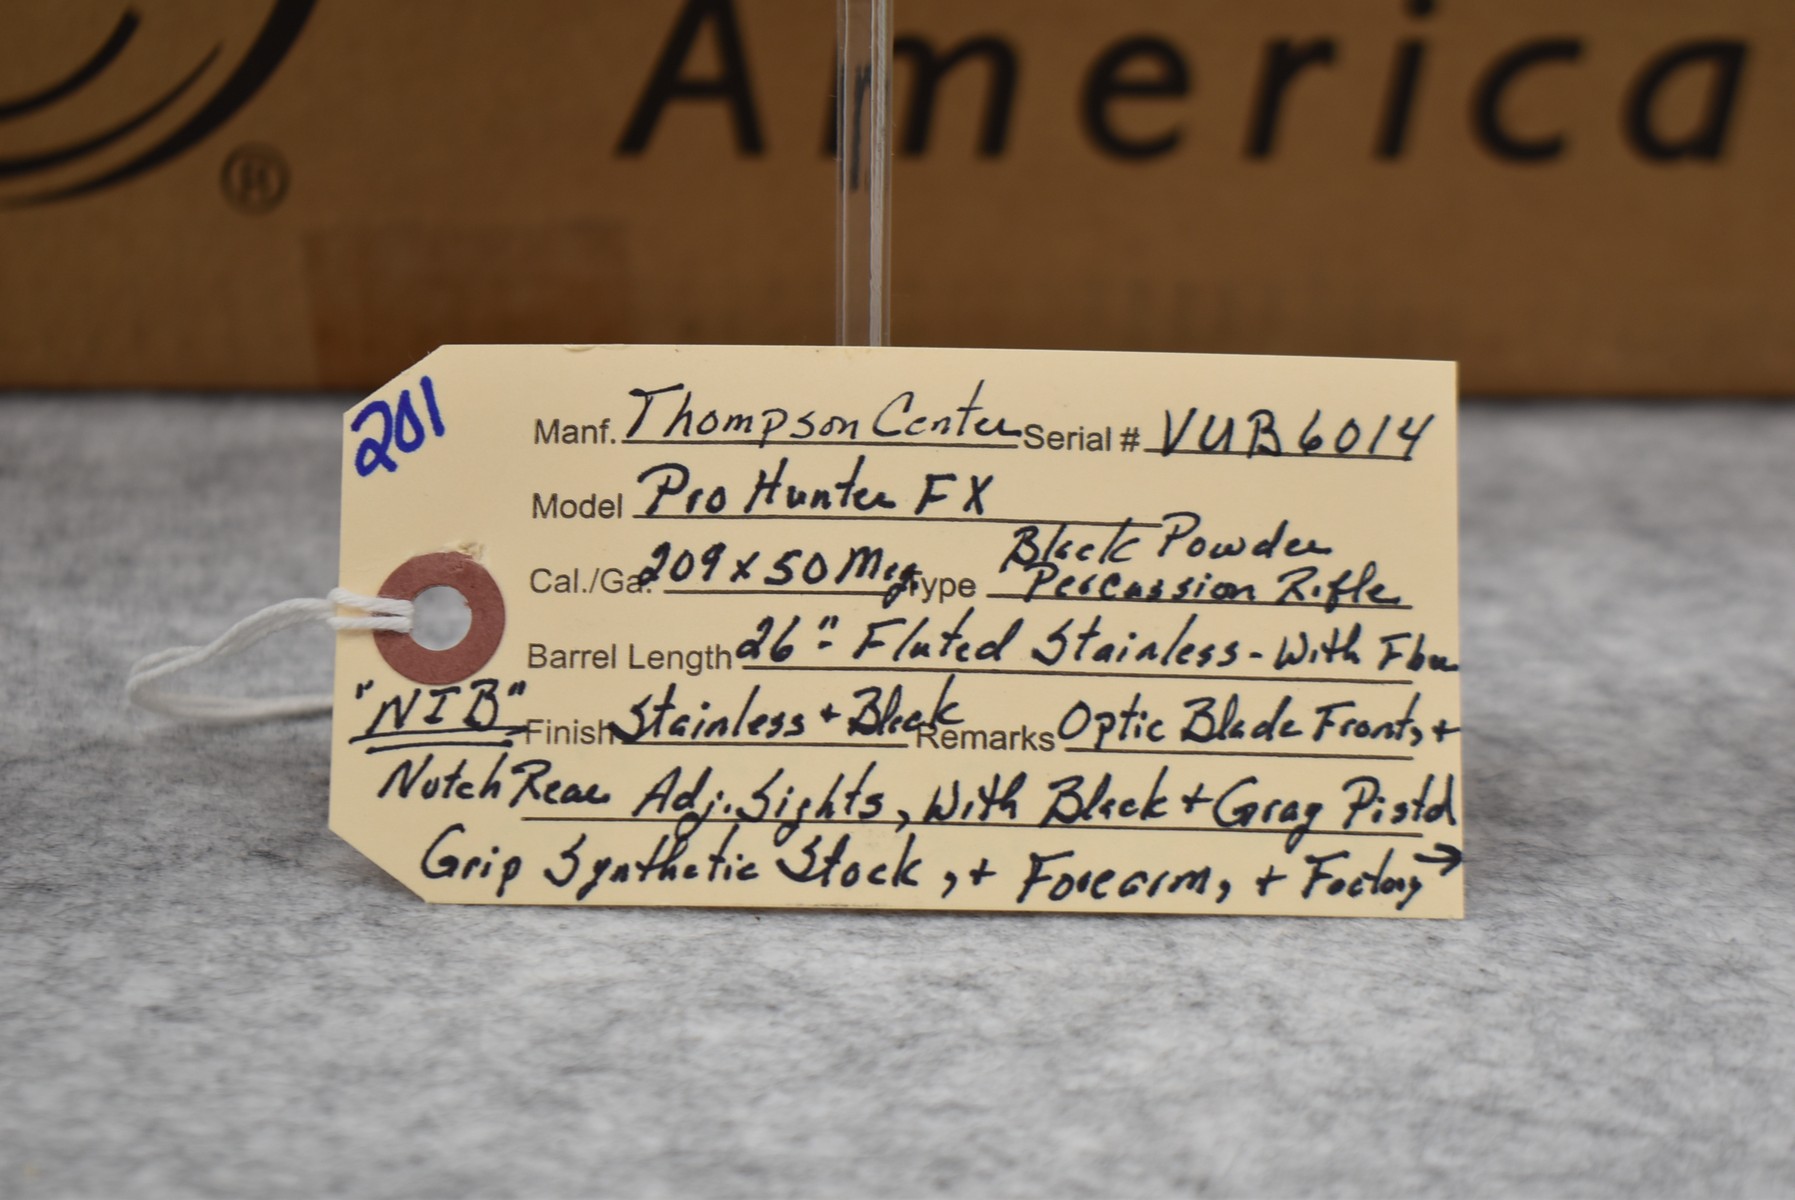 America
®
201
Manf. Thompson Center Serial # VUB6014
Model Pro Hunter FX
Cal./Ga. 209 x 50 Mag. Type Black Powder
Percussion Rifle
Barrel Length 26" - Fluted Stainless - With Fber
"NIB" Finish Stainless + Black Remarks Optic Blade Front, +
Notch Rear Adj. Sights, With Black + Gray Pistol
Grip Synthetic Stock, + Forearm, + Factory →